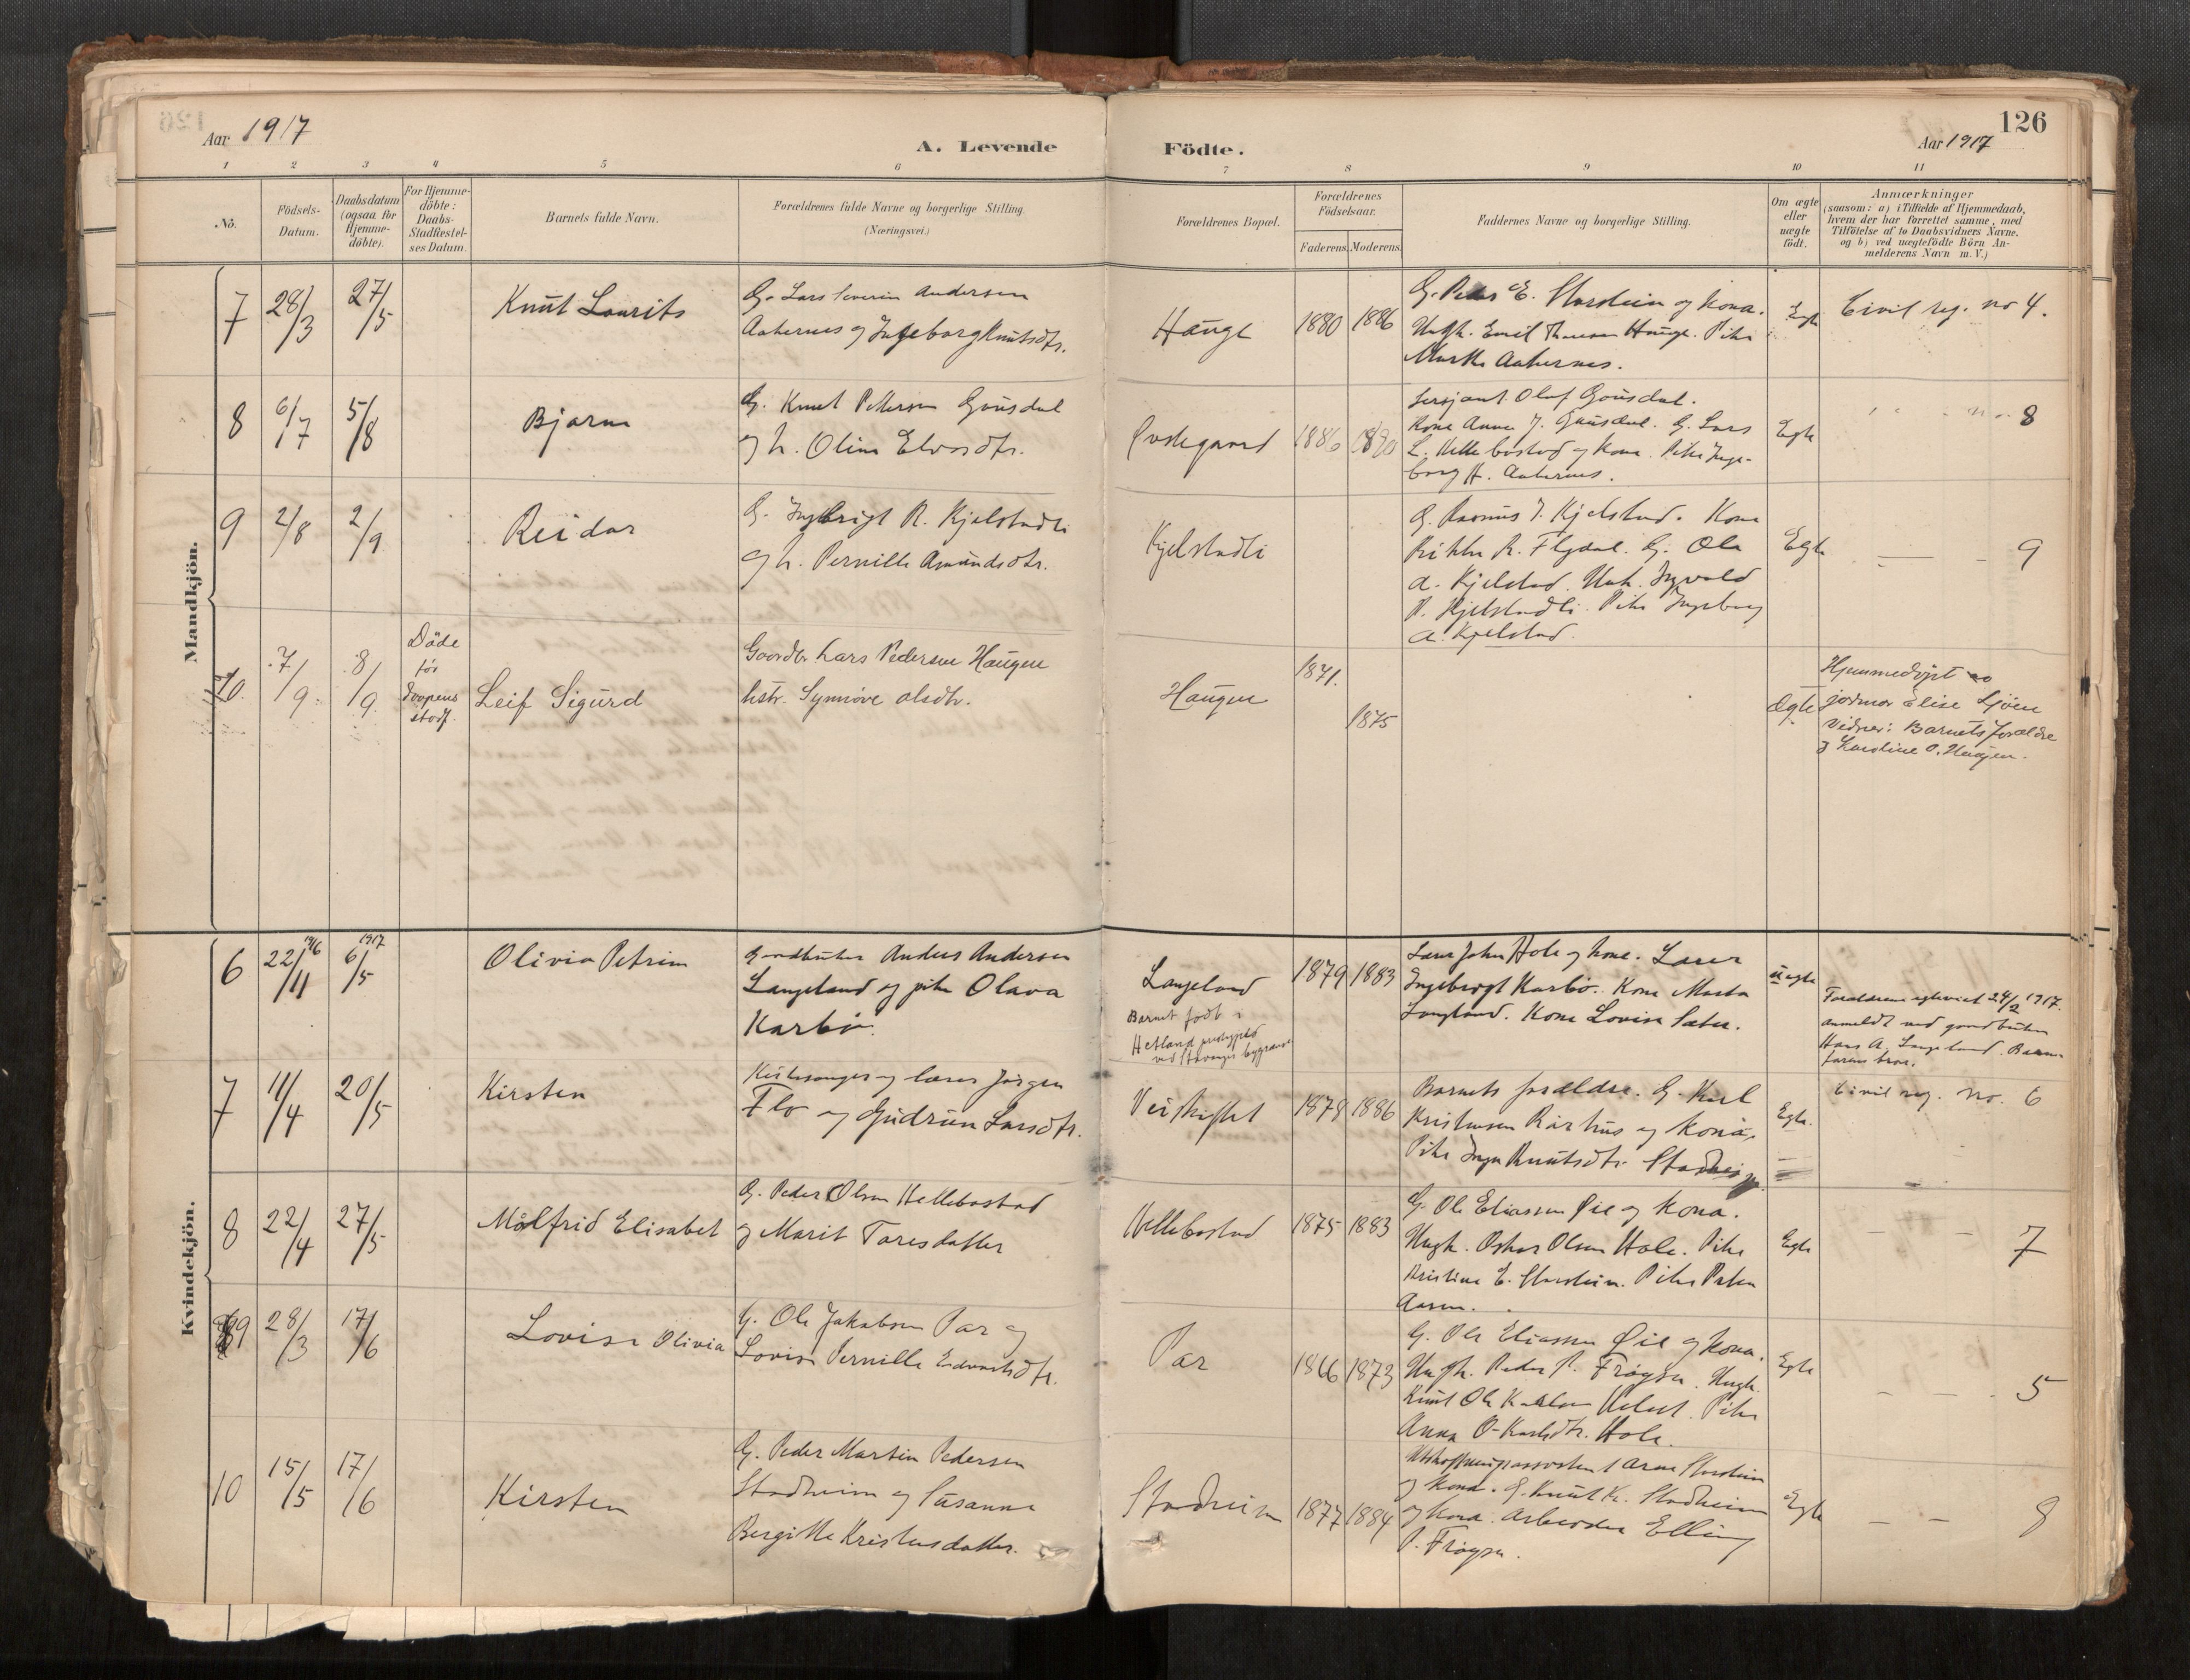 126
Aar 1917
A. Levende
Födte.
Aar 1917
1 2 3 4 5 6 7 8 9 10 11
No.
Födsels-Datum.
Daabsdatum (ogsaa for Hjemme-döbte).
For Hjemme-döbte: Daabs-Stadfæstel-ses Datum.
Barnets fulde Navn.
Forældrenes fulde Navne og borgerlige Stilling
(Næringsvei.)
Forældrenes Bopæl.
Forældrenes Födselsaar.
Faderens. Moderens.
Faddernes Navne og borgerlige Stilling.
Om ægte eller uægte födt.
Anmærkninger
(saasom: a) i Tilfælde af Hjemmedaab,
hvem der har forrettet samme, med
Tilföielse af to Daabsvidners Navne.
og b) ved uægtefödte Börn An-
melderens Navn m. V.)
Mandkjön.
7 28/3 27/5 Knut Laurits
G. Lars Severin Andersen
Aakernes og Ingeborg Knutsdtr.
Hauge 1880 1886
G. Peder E. Stordein og kona.
Ungk. Emil Hauge. Pike
Marthe Aakernes.
Egte
Civil reg. no 4.
8 6/7 5/8 Bjarne
G. Knut Pettersen Gausdal
og h. Oline Elvesdtr.
Ovstegaard 1886 1890
Sersjant Olaf Gausdal.
Kone Anna J. Gausdal. G. Lars
L. Hellebostad og kone. Pike Inge-
borg H. Aakernes.
Egte
no. 8
9 2/8 2/9 Reidar
G. Ingebrigt R. Kjelstadli
og h. Pernille Amundsdtr.
Kjelstadli
G. Rasmus J. Kjelstad. Kone
Rikke R. Flydal. G. Ole
A. Kjelstad. Unk. Ingvald
R. Kjelstadli. Pike Ingeborg
A. Kjelstad.
Egte
— — 9
10. 7/9 8/9
Döde
för
daapens
stadf.
Leif Sigurd
Gaardbr. Lars Pedersen Haugen
hstr. Synnöve Olsdtr.
Haugen 1871. 1875
Ægte
Hjemmedöpt av
jordmor Elise Sjöen
Vidner: Barnets forældre
og Karoline O. Haugen.
Kvindekjön.
6 22/11 1916 6/5 1917 Olivia Petrine
Gaardbruker Anders Andersen
Langeland og pike Olava
Karbö.
Langeland
Barnet födt i
Hetland prestegjeld
ved Stavanger bygrænse
1879 1883
Lærer John Hole og kone. Lærer
Ingebregt Karbö. Kone Marta
Langland. Kone Lovise Sæter.
uegte
Forældrene egteviet 24/2 1917.
Anmeldt ved gardbruker
Hans A. Langeland. Barne-
farens bror.
7 11/4 20/5 Kirsten
Kirkesanger og lærer Jörgen
Flo og Gudrun Larsdtr.
Veiskiftet 1878 1886
Barnets forældre. G. Karl
Kristensen Raihus og kona.
Pike Inga Knutsdtr. Stadheim
Egte.
Civil reg. no. 6
8 22/4 27/5 Målfrid Elisabet
G. Peder Olsen Hellebostad
og Marit Taresdatter
Hellebostad 1875 1883
G. Ole Eliassen Øie og kona.
Ungk. Oskar Olsen Hole. Pike
Kristine E. Stordein. Pike Petra
Aasen.
Egte
— — 7
9 28/3 17/6 Lovise Olivia
G. Ole Jakobsen Par og
Lovise Pernille Edvardsdtr.
Par 1866 1873
G. Ole Eliassen Øie og kona.
Ungk. Peder P. Fröysa. Ungk.
Knut Ole Karlsen Uelset. Pike
Anna O. Karlsdtr. Hole.
Egte
— — 5
10 15/5 17/6 Kirsten
G. Peder Martin Pedersen
Stadheim og Susanne
Bergitte Kristensdatter.
Stadheim 1877 1884
Utskiftningsassistent Arne Stordein
og kona. G. Knut K. Stadheim
og kona. Arbeider Elling
P. Fröysa.
Egte
— — 8